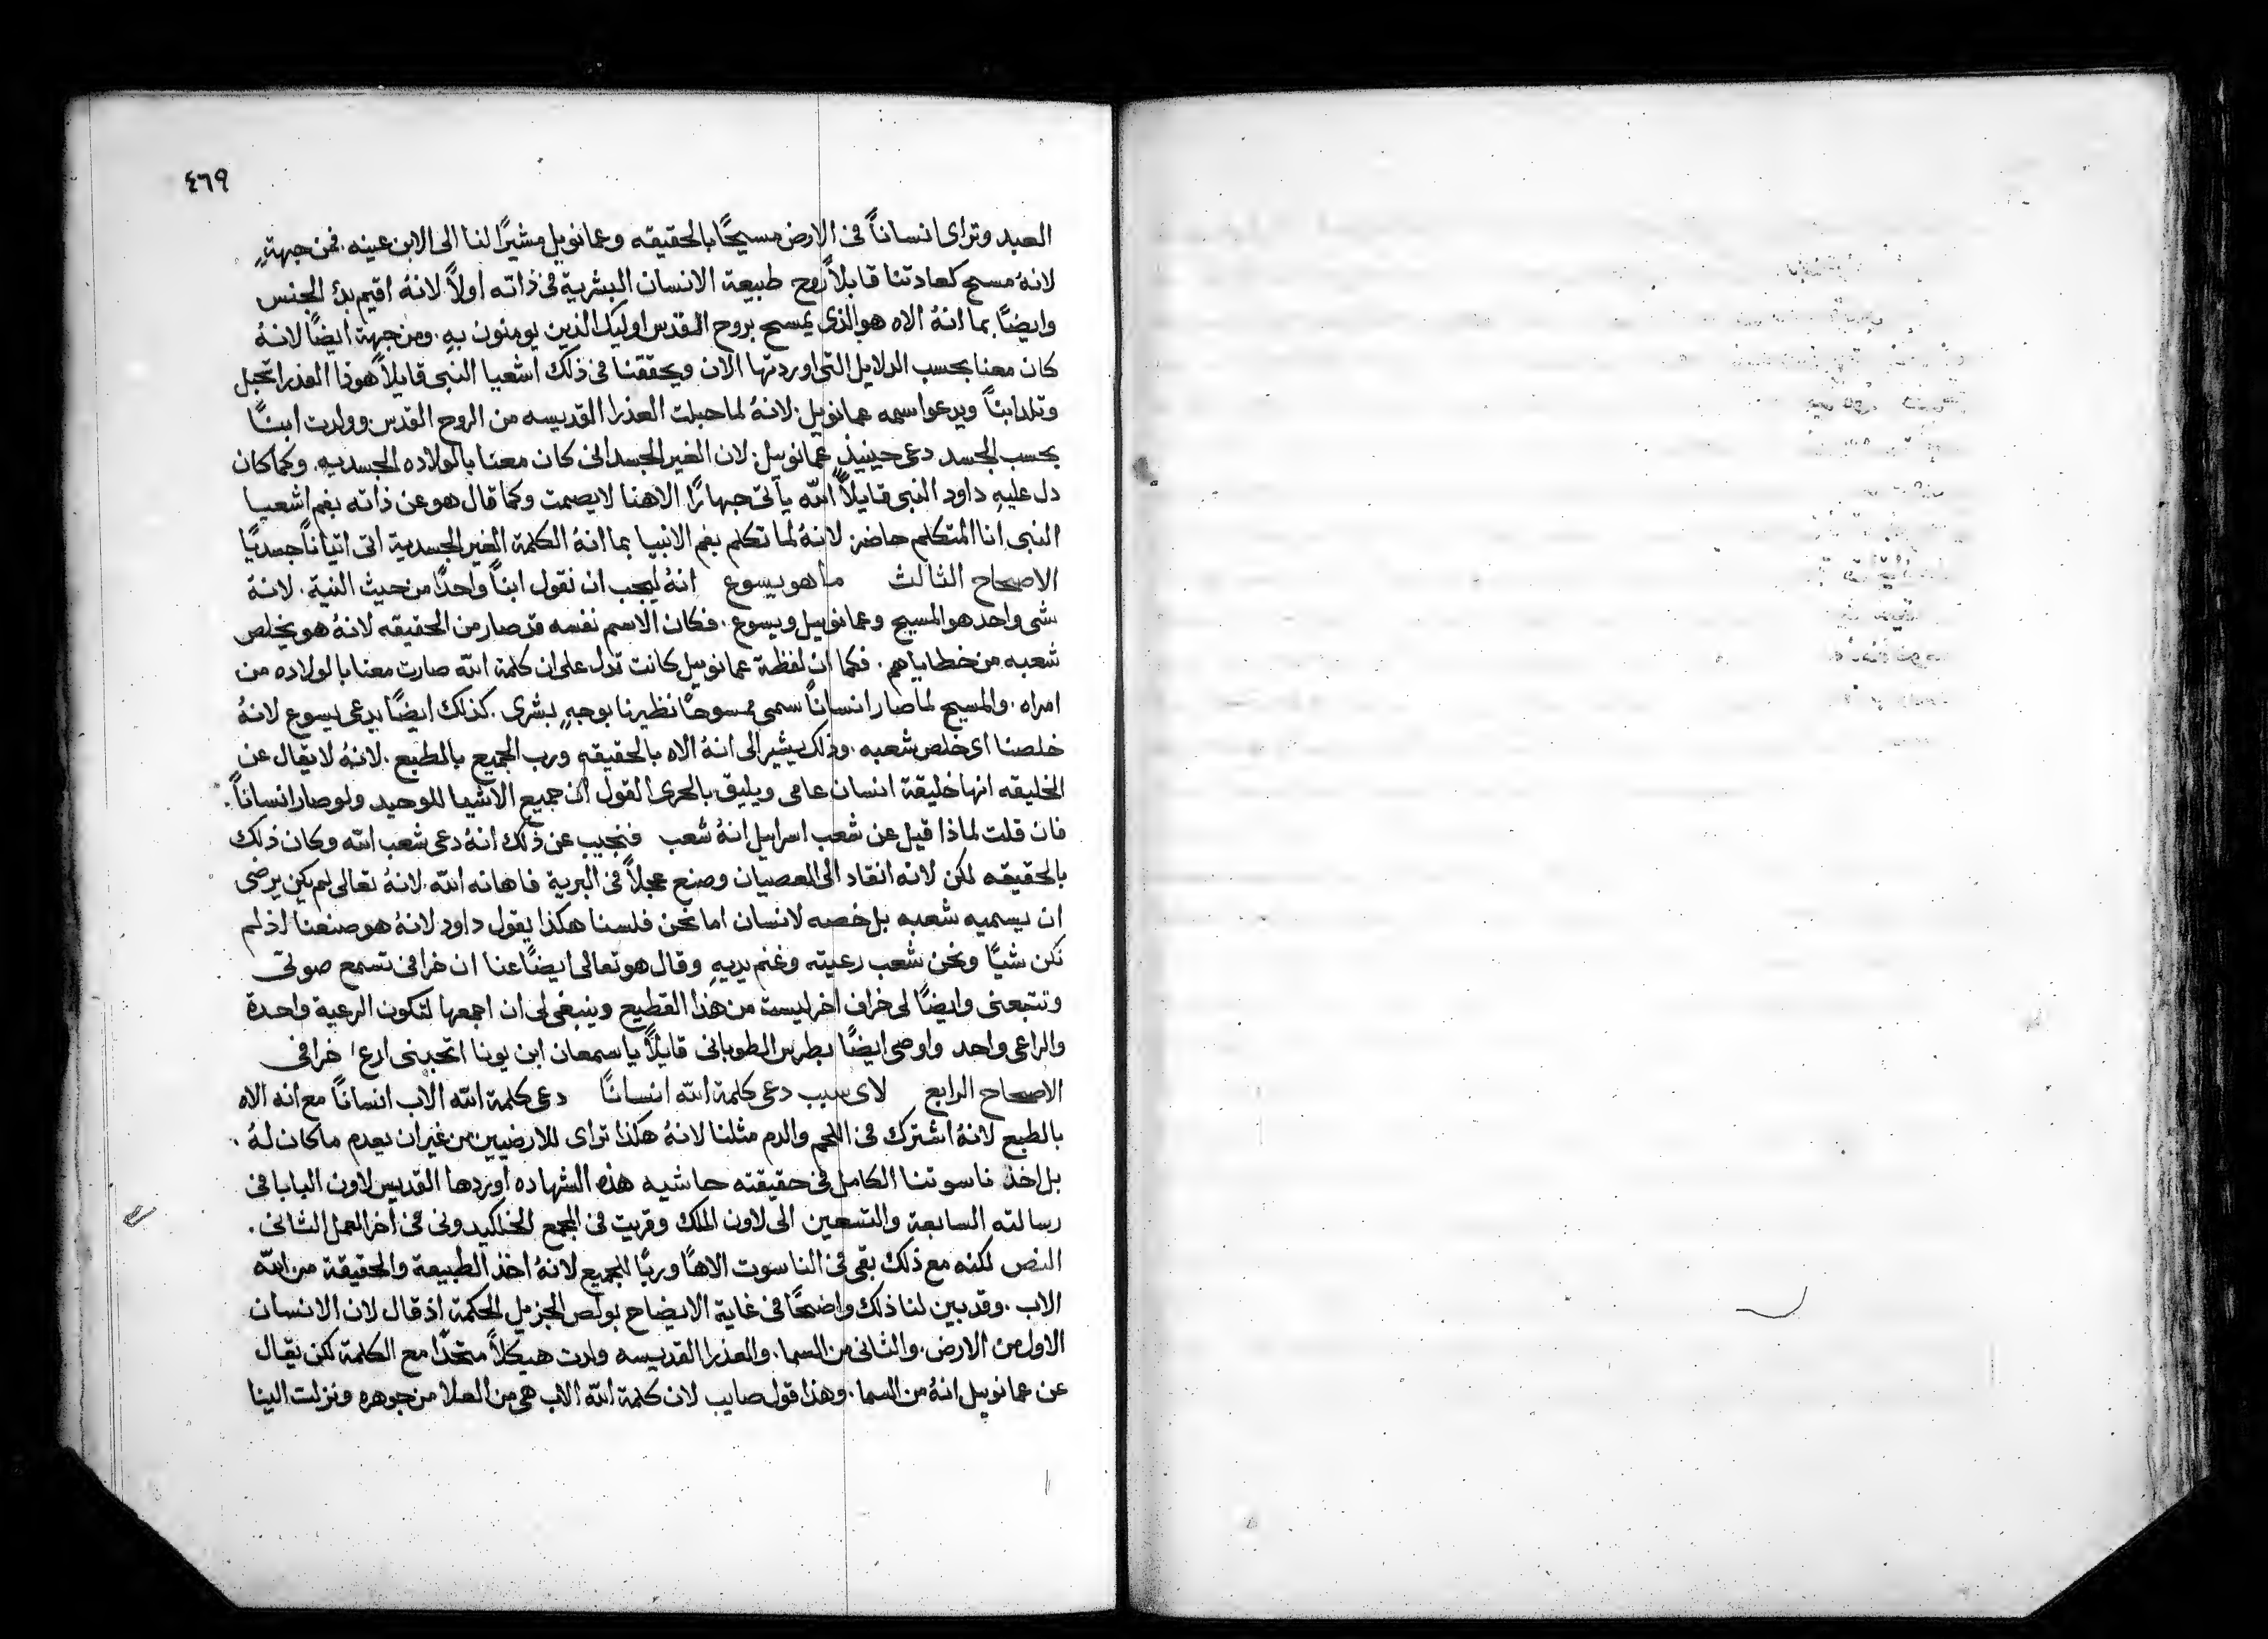 ٤٦٩
العبد وتراى انساناً فى الارض مسيحًا بالحقيقه وعمانوييل مشيرًا لنا الى الابن عينه. فمن جهةٍ
لانهُ مسح كعادتنا قابلاً روح طبيعة الانسان البشرية فى ذاته اولاً. لانهُ اقيم بدُ الجنس
وايضًا بما انهُ الاه هو الذى يمسح بروح القدس اوليك الذين يومنون بهِ. ومن جهة ايضًا لانهُ
كان معنا بحسب الدلايل التى اوردتها الان ويحققنا فى ذلك اشعيا النبى قايلاً هوذا العذرا تحبل
وتلد ابناً ويدعوا اسمه عمانوييل. لانهُ لما حبلت العذرا القديسه من الروح القدس وولدت ابنًا
بحسب الجسد دعى حينيذٍ عمانوييل. لان الغير الجسدانى كان معنا بالولاده الجسديه. وكما كان
دل عليهِ داود النبى قايلاً الله يآتى جهارًا الاهنا لا يصمت وكما قال هو عن ذاته بفم اشعيا
النبى انا المتكلم حاضر. لانهُ لما تكلم بفم الانبيا بما انهُ الكلمة الغير الجسدية اتى اتياناً جسديًا
الاصحاح الثالث ما هو يسوع انهُ ليجب ان نقول ابناً واحدًا من حيث النية. لانهُ
شى واحد هو المسيح وعمانوييل ويسوع. فكان الاسم نفسه قد صار من الحقيقه لانهُ هو يخلص
شعبه من خطاياهم. فكما ان لفظة عمانوييل كانت تدل على ان كلمة الله صارت معنا بالولاده من
امراه. والمسيح لما صار انساناً سمى ممسوحًا نظيرنا بوجهٍ بشرى. كذلك ايضًا يدعى يسوع لانهُ
خلصنا اى خلص شعبه. وذلك يشير الى انهُ الاه بالحقيقه ورب الجميع بالطبع. لانهُ لا يقال عن
الخليقه انها خليقة انسان عامى ويليق بالحرى القول ان جميع الاشيا للوحيد ولو صار انساناً.
فان قلت لماذا قيل عن شعب اسراييل انهُ شعب فنجيب عن ذلك انهُ دعى شعب الله وكان ذلك
بالحقيقه لكن لانه انقاد الى العصيان وصنع عجلاً فى البرية فاهانه الله. لانهُ تعالى لم يكن يرضى
ان يسميه شعبه بل خصه لانسان اما نحن فلسنا هكذا يقول داود لانهُ هو صنعنا اذ لم
نكن شيًا ونحن شعب رعيته وغنم يديهِ وقال هو تعالى ايضًا عنا ان خرافى تسمع صوتى
وتتبعنى وايضًا لى خراف اخر ليست من هذا القطيع وينبغى لى ان اجمعها لتكون الرعية واحدة
والراعى واحد واوصى ايضًا بطرس الطوبانى قايلاً يا سمعان ابن يونا اتحبنى ارع خرافى
الاصحاح الرابع لاى سبب دعى كلمة الله انسانًا دعى كلمة الله الاب انساناً مع انه الاه
بالطبع لانهُ اشترك فى اللحم والدم مثلنا لانهُ هكذا تراى للارضيين من غير ان يعدم ما كان لهُ.
بل اخذ ناسوتنا الكامل فى حقيقته حاشيه هذه الشهاده اوردها القديس لاون البابا فى
رسالته السابعة والتسعين الى لاون الملك وقريت فى المجمع الخلكيدونى فى اخر العمل الثانى.
النص لكنه مع ذلك بقى فى الناسوت الاهًا وربًا للجميع لانهُ اخذ الطبيعة والحقيقة من الله
الاب. وقد بين لنا ذلك واضحًا فى غاية الايضاح بولص الجزيل الحكمة اذ قال لان الانسان
الاول من الارض. والثانى من السما. والعذرا القديسه ولدت هيكلاً متحدًا مع الكلمة لكن يقال
عن عمانوييل انهُ من السما. وهذا قول صايب لان كلمة الله الاب هى من العلا من جوهره ونزلت الينا